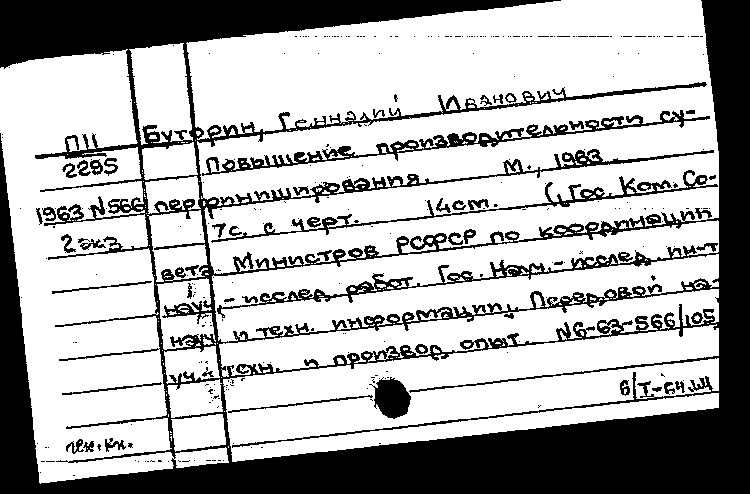 П11
2295
Буторин, Геннадий Иванович
Повышение производительности су-
1963 N566 перфиниширования. М., 1963.
2 экз. 7с. с черт. 14см. (Гос. Ком. Со-
вета Министров РСФСР по координации
науч.-исслед. работ. Гос. Науч.-исслед. ин-т
науч. и техн. информации). Передовой на-
уч.-техн. и производ. опыт. N6-63-566/105
6/Т-64